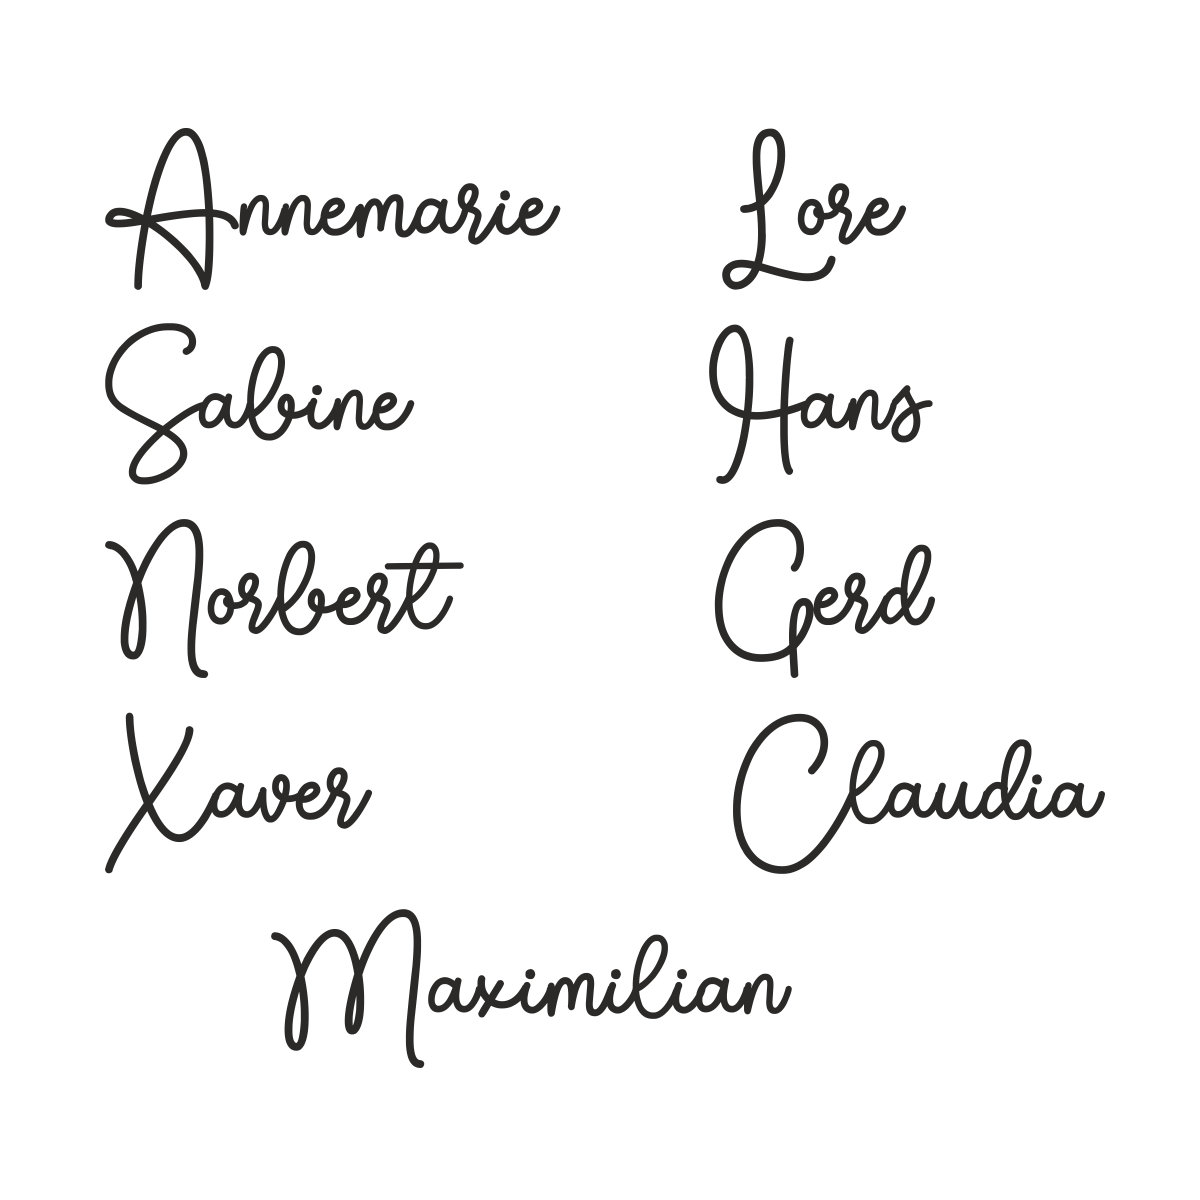 Annemarie Lore
Sabine Hans
Norbert Gerd
Xaver Claudia
Maximilian